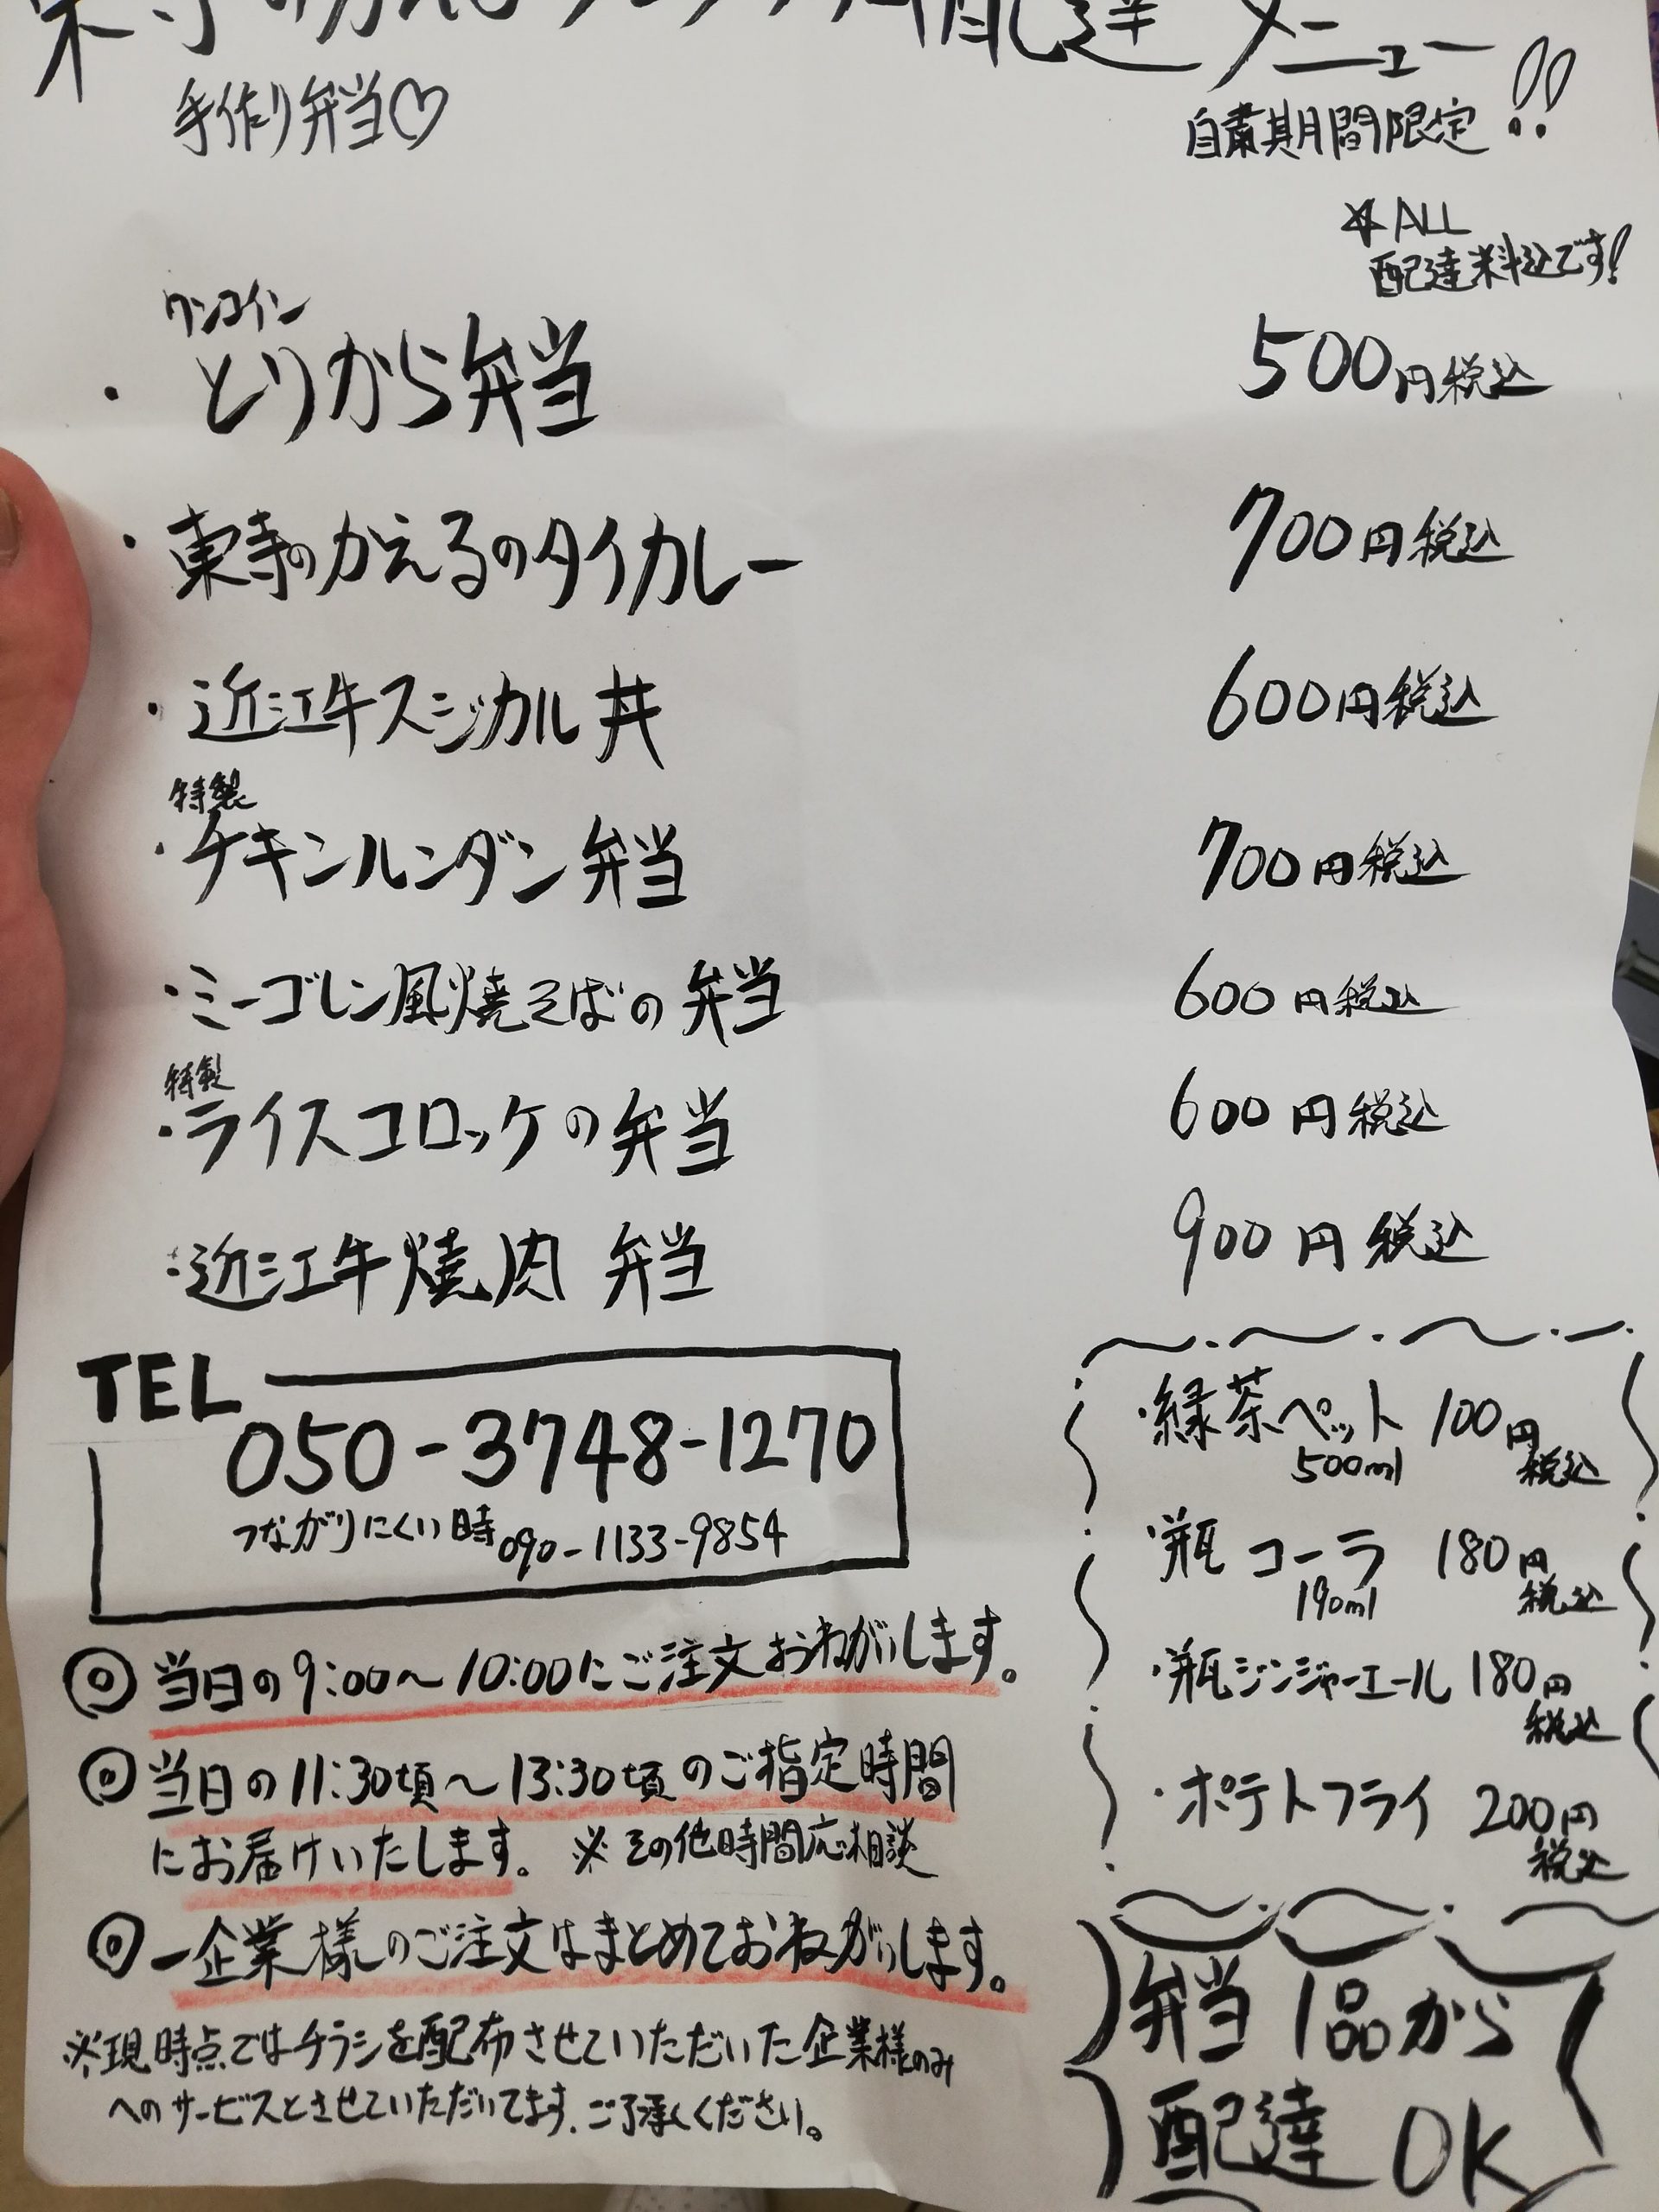 東寺のかえるランチ配達メニュー
手作り弁当♡
自粛期間限定!!
☆ALL
配達料込です!
ワンコイン
・とりから弁当 500円税込
・東寺のかえるのタイカレー 700円税込
・近江牛スジカル丼 600円税込
特製
・チキンルンダン弁当 700円税込
・ミーゴレン風焼そばの弁当 600円税込
特製
・ライスコロッケの弁当 600円税込
・近江牛焼肉弁当 900円税込
TEL
050-3748-1270
つながりにくい時090-1133-9854
◎当日の9:00〜10:00にご注文おねがいします。
◎当日の11:30頃〜13:30頃のご指定時間
にお届けいたします。※その他時間応相談
◎一企業様のご注文はまとめておねがいします。
※現時点ではチラシを配布させていただいた企業様のみ
へのサービスとさせていただいてます。ご了承ください。
・緑茶ペット 100円
500ml 税込
・瓶コーラ 180円
190ml 税込
・瓶ジンジャーエール 180円
税込
・ポテトフライ 200円
税込
弁当1品から
配達OK